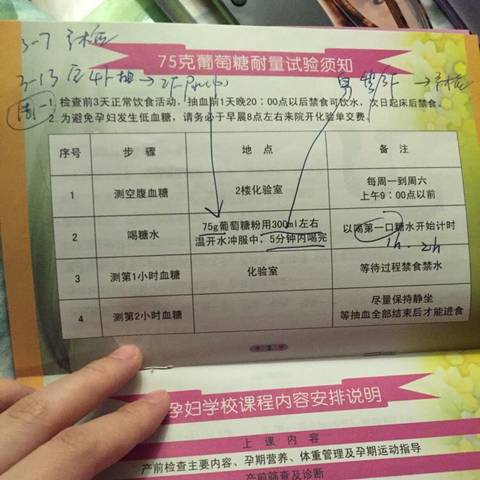 3-7
75克葡萄糖耐量试验须知
3-13
1.检查前3天正常饮食活动，抽血前1天晚20：00点以后禁食可饮水，次日起床后禁食。
2.为避免孕妇发生低血糖，请务必于早晨8点左右来院开化验单交费。
序号 步骤 地点 备注
1 测空腹血糖 2楼化验室 每周一到周六
上午9：00点以前
2 喝糖水 75g葡萄糖粉用300ml左右
温开水冲服中，5分钟内喝完 以喝第一口糖水开始计时
1h. 2h
3 测第1小时血糖 化验室 等待过程禁食禁水
4 测第2小时血糖 尽量保持静坐
等抽血全部结束后才能进食
2
孕妇学校课程内容安排说明
上课内容
产前检查主要内容、孕期营养、体重管理及孕期运动指导
产前筛查及诊断